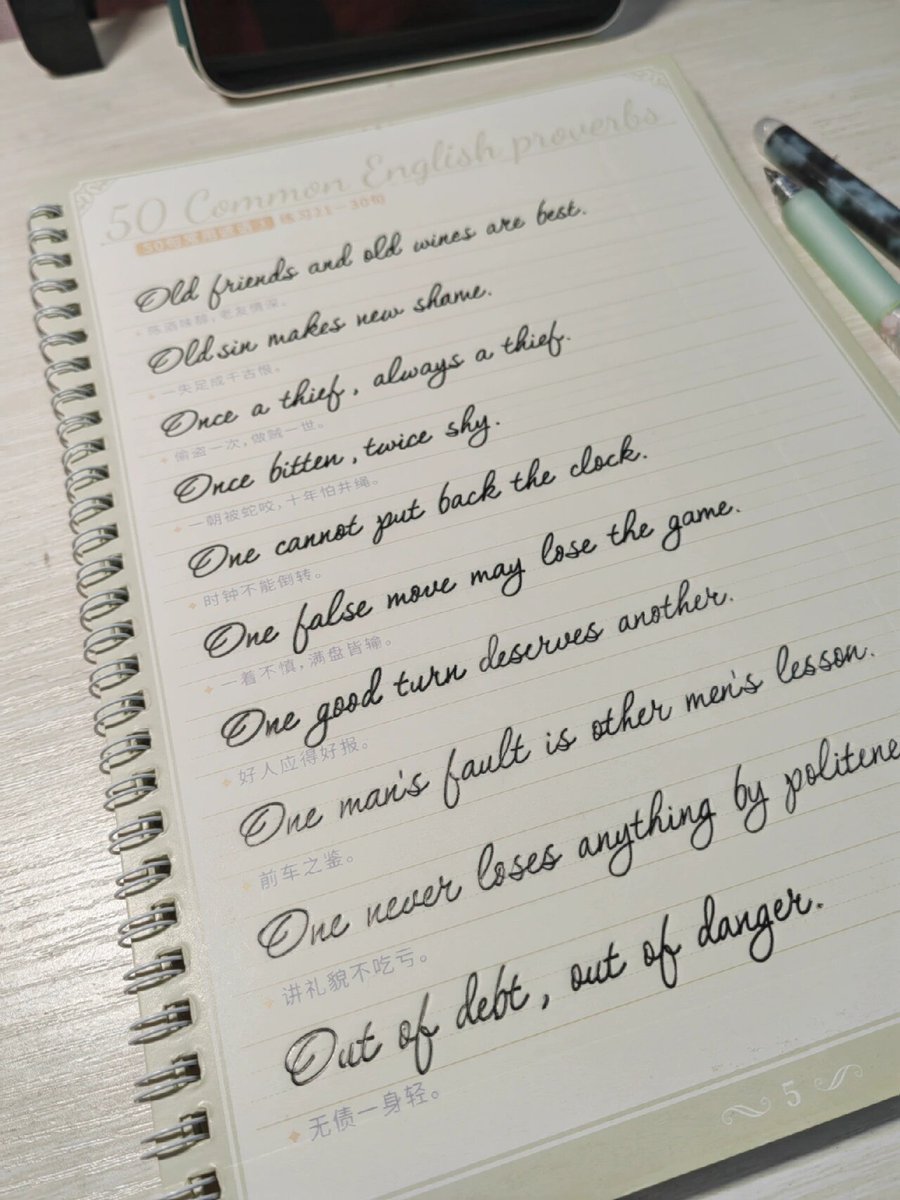 50 Common English proverbs
50句常用谚语 练习21-30句
Old friends and old wines are best.
陈酒味醇,老友情深。
Old sin makes new shame.
一失足成千古恨。
Once a thief, always a thief.
偷盗一次,做贼一世。
Once bitten, twice shy.
一朝被蛇咬,十年怕井绳。
One cannot put back the clock.
时钟不能倒转。
One false move may lose the game.
一着不慎,满盘皆输。
One good turn deserves another.
好人应得好报。
One man's fault is other men's lesson.
前车之鉴。
One never loses anything by politene
讲礼貌不吃亏。
Out of debt, out of danger.
无债一身轻。
5